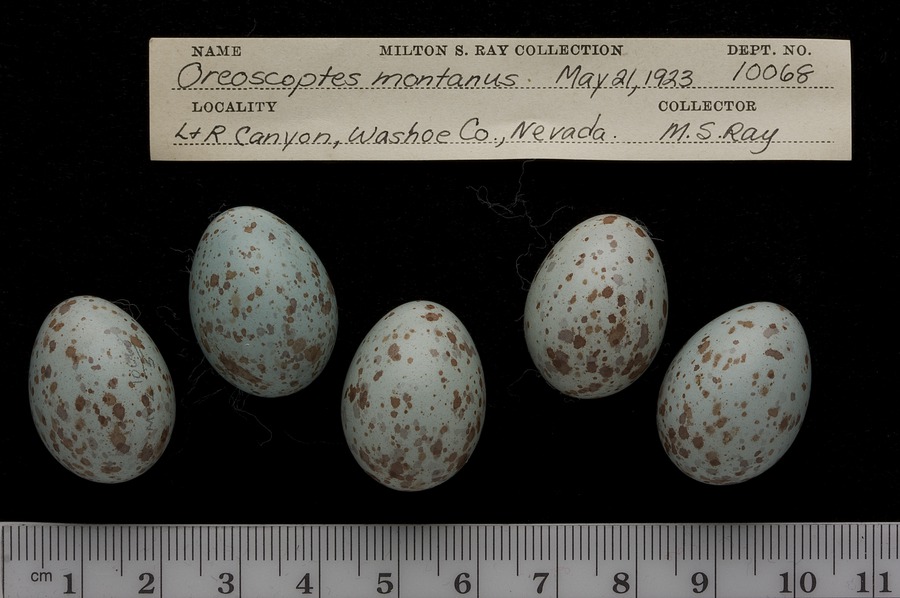 NAME MILTON S. RAY COLLECTION DEPT. NO.
Oreoscoptes montanus. May 21, 1923 10068
LOCALITY COLLECTOR
L+R Canyon, Washoe Co., Nevada. M.S. Ray
cm 1 2 3 4 5 6 7 8 9 10 11